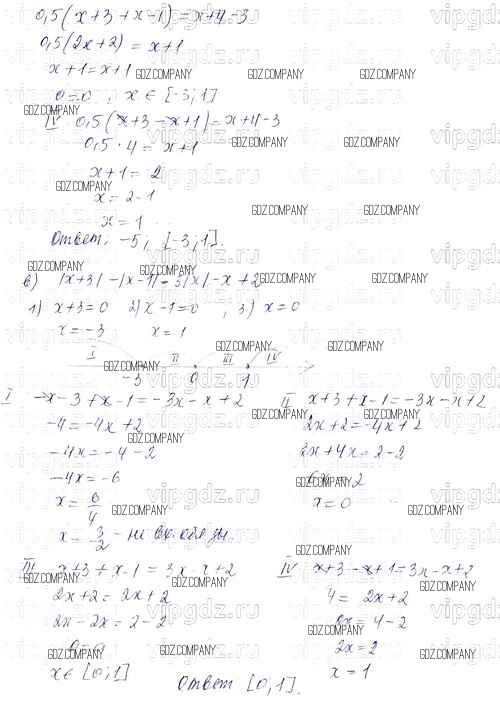 0,5(x+3+x-1)=x+4-3
0,5(2x+2)=x+1
x+1=x+1
0=0, x ∈ [-3;1]
IV 0,5(x+3-x+1)=x+4-3
0,5·4=x+1
x+1=2
x=2-1
x=1
Ответ: -5, [-3;1].
в) |x+3|-|x-1|=3|x|-x+2
1) x+3=0 2) x-1=0, 3) x=0
x=-3 x=1
I II III IV
-3 0 1
I -x-3+x-1=-3x-x+2
-4=-4x+2
-4x=-4-2
-4x=-6
x=6/4
x=3/2 - не вх. обл.
II x+3+x-1=-3x-x+2
2x+2=-4x+2
2x+4x=2-2
x=0
III x+3+x-1=3x-x+2
2x+2=2x+2
2x-2x=2-2
0=0
x∈[0;1]
IV x+3-x+1=3x-x+2
4=2x+2
2x=4-2
2x=2
x=1
Ответ [0;1].
GDZ.COMPANY
vipgdz.ru